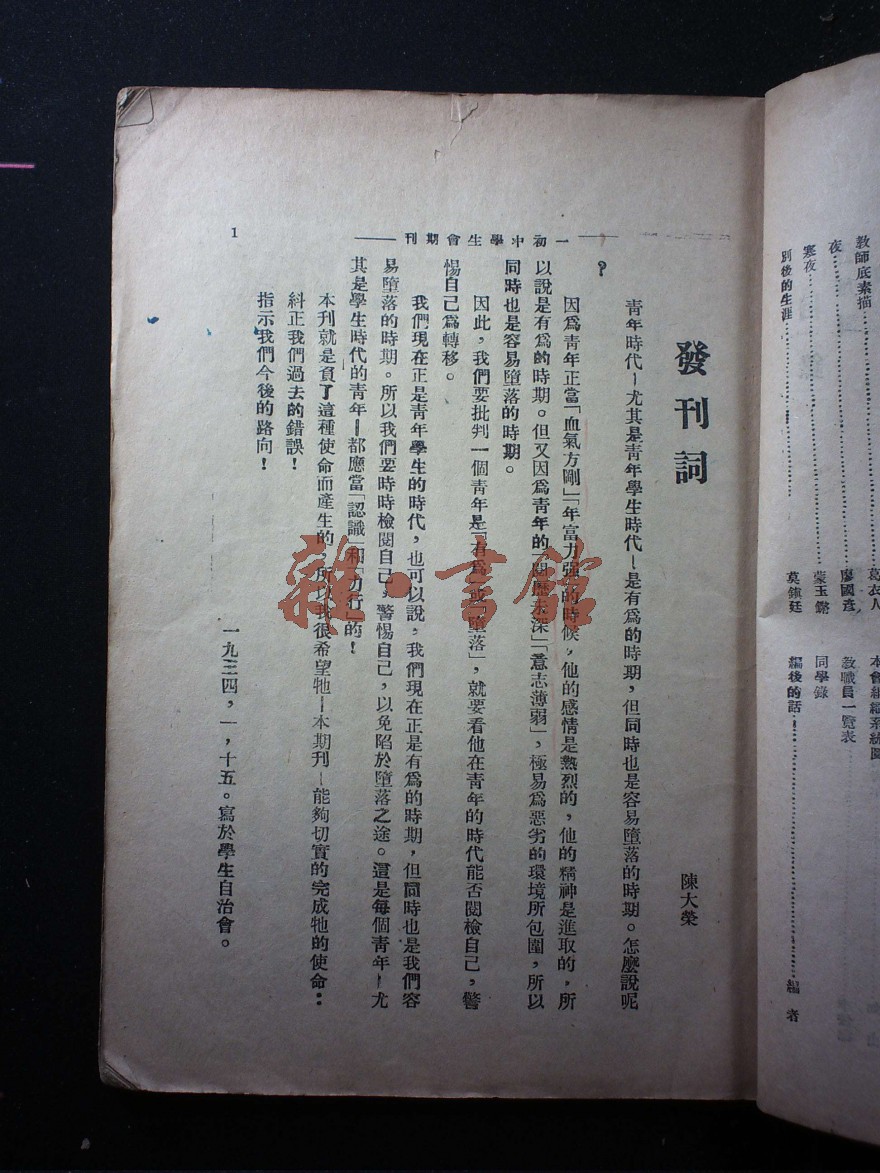 教師底素描……………葛衣人
夜……………廖國彥
寒夜……………蒙玉鏘
別後的生涯……………莫鎮廷
本會組織系統圖
教職員一覽表
同學錄
編後的話……………編者
一初中學生會期刊
1
發刊詞
陳大榮
青年時代—尤其是青年學生時代—是有爲的時期,但同時也是容易墮落的時期。怎麼說呢
?
因爲青年正當「血氣方剛」「年富力强的時候,他的感情是熱烈的,他的精神是進取的,所
以說是有爲的時期。但又因爲青年的「閱歷未深」「意志薄弱」,極易爲惡劣的環境所包圍,所以
同時也是容易墮落的時期。
因此,我們要批判一個青年是「有爲」或「墮落」,就要看他在青年的時代能否閱檢自己,警
惕自己爲轉移。
我們現在正是青年學生的時代,也可以說,我們現在正是有爲的時期,但同時也是我們容
易墮落的時期。所以我們要時時檢閱自己,警惕自己,以免陷於墮落之途。這是每個青年—尤
其是學生時代的青年—都應當「認識」和「力行」的!
本刊就是負了這種使命而產生的,所以我很希望牠—本期刊—能夠切實的完成牠的使命:
糾正我們過去的錯誤!
指示我們今後的路向!
一九三四,一,十五。寫於學生自治會。
雜·書館